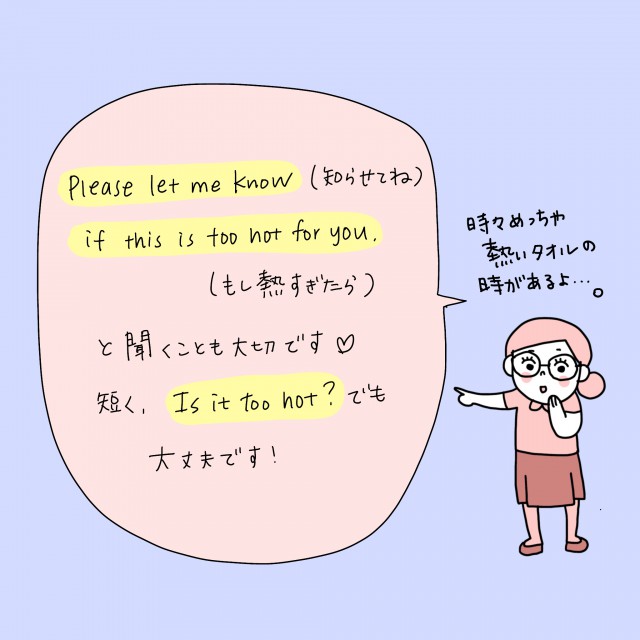 Please let me know (知らせてね)
if this is too hot for you.
(もし熱すぎたら)
と聞くことも大切です♡
短く、Is it too hot?でも
大丈夫です!
時々めっちゃ
熱いタオルの
時があるよ…。